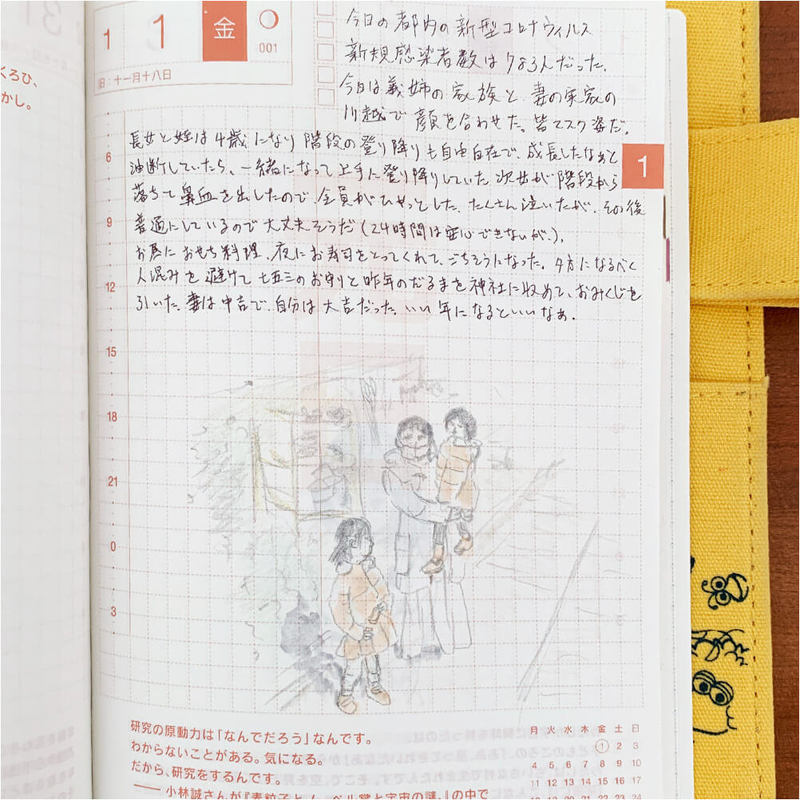 くろひ、
かし。
1 1 金
001
旧:十一月十八日
今日の都内の新型コロナウィルス
新規感染者数は783人だった。
今日は義姉の家族と、妻の実家の
川越で顔を合わせた。皆マスク姿だ。
長女と姪は4歳になり階段の登り降りも自由自在で、成長したなぁと
油断していたら、一緒になって上手に登り降りしていた次女が階段から
落ちて鼻血を出したので全員がひやっとした。たくさん泣いたが、その後
普通にしているので大丈夫そうだ(24時間は安心できないが)。
お昼におもち料理、夜にお寿司をとってくれて、ごちそうになった。夕方になるべく
人混みを避けて七五三のお守りと昨年のだるまを神社に収めて、おみくじを
引いた。妻は中吉で、自分は大吉だった。いい年になるといいなぁ。
1
6
9
12
15
18
21
0
3
研究の原動力は「なんでだろう」なんです。
わからないことがある。気になる。
だから、研究をするんです。
―― 小林誠さんが『素粒子と
月 火 水 木 金 土 日
1 2 3
4 5 6 7 8 9 10
11 12 13 14 15 16 17